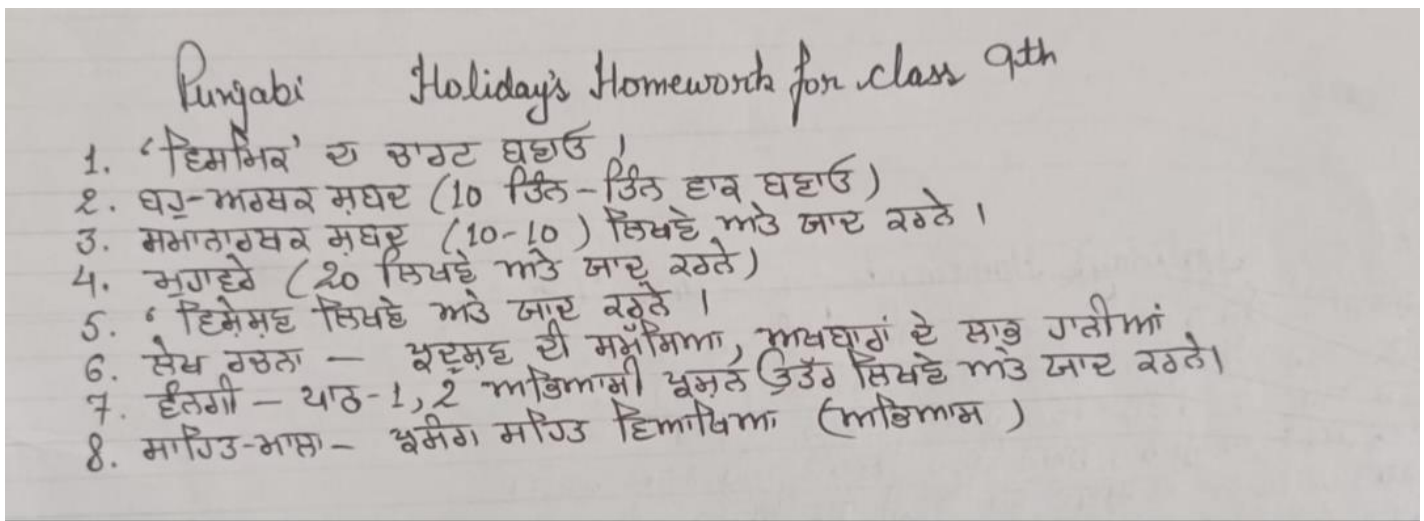 Punjabi Holiday's Homework for class 9th
1. 'ਵਿਸਮਿਕ' ਦਾ ਚਾਰਟ ਬਣਾਓ ।
2. ਬਹੁ-ਅਰਥਕ ਸ਼ਬਦ (10 ਤਿੰਨ-ਤਿੰਨ ਵਾਕ ਬਣਾਓ)
3. ਸਮਾਨਾਰਥਕ ਸ਼ਬਦ (10-10) ਲਿਖਣੇ ਅਤੇ ਯਾਦ ਕਰਨੇ ।
4. ਮੁਹਾਵਰੇ (20 ਲਿਖਣੇ ਅਤੇ ਯਾਦ ਕਰਨੇ)
5. ' ਵਿਸ਼ੇਸ਼ਣ ਲਿਖਣੇ ਅਤੇ ਯਾਦ ਕਰਨੇ ।
6. ਲੇਖ ਰਚਨਾ — ਪ੍ਰਦੂਸ਼ਣ ਦੀ ਸਮੱਸਿਆ, ਅਖਬਾਰਾਂ ਦੇ ਲਾਭ ਹਾਨੀਆਂ
7. ਵੰਨਗੀ – ਪਾਠ-1, 2 ਅਭਿਆਸੀ ਪ੍ਰਸ਼ਨ ਉੱਤਰ ਲਿਖਣੇ ਅਤੇ ਯਾਦ ਕਰਨੇ।
8. ਸਾਹਿਤ-ਮਾਲਾ – ਪ੍ਰਸੰਗ ਸਹਿਤ ਵਿਆਖਿਆ (ਅਭਿਆਸ)